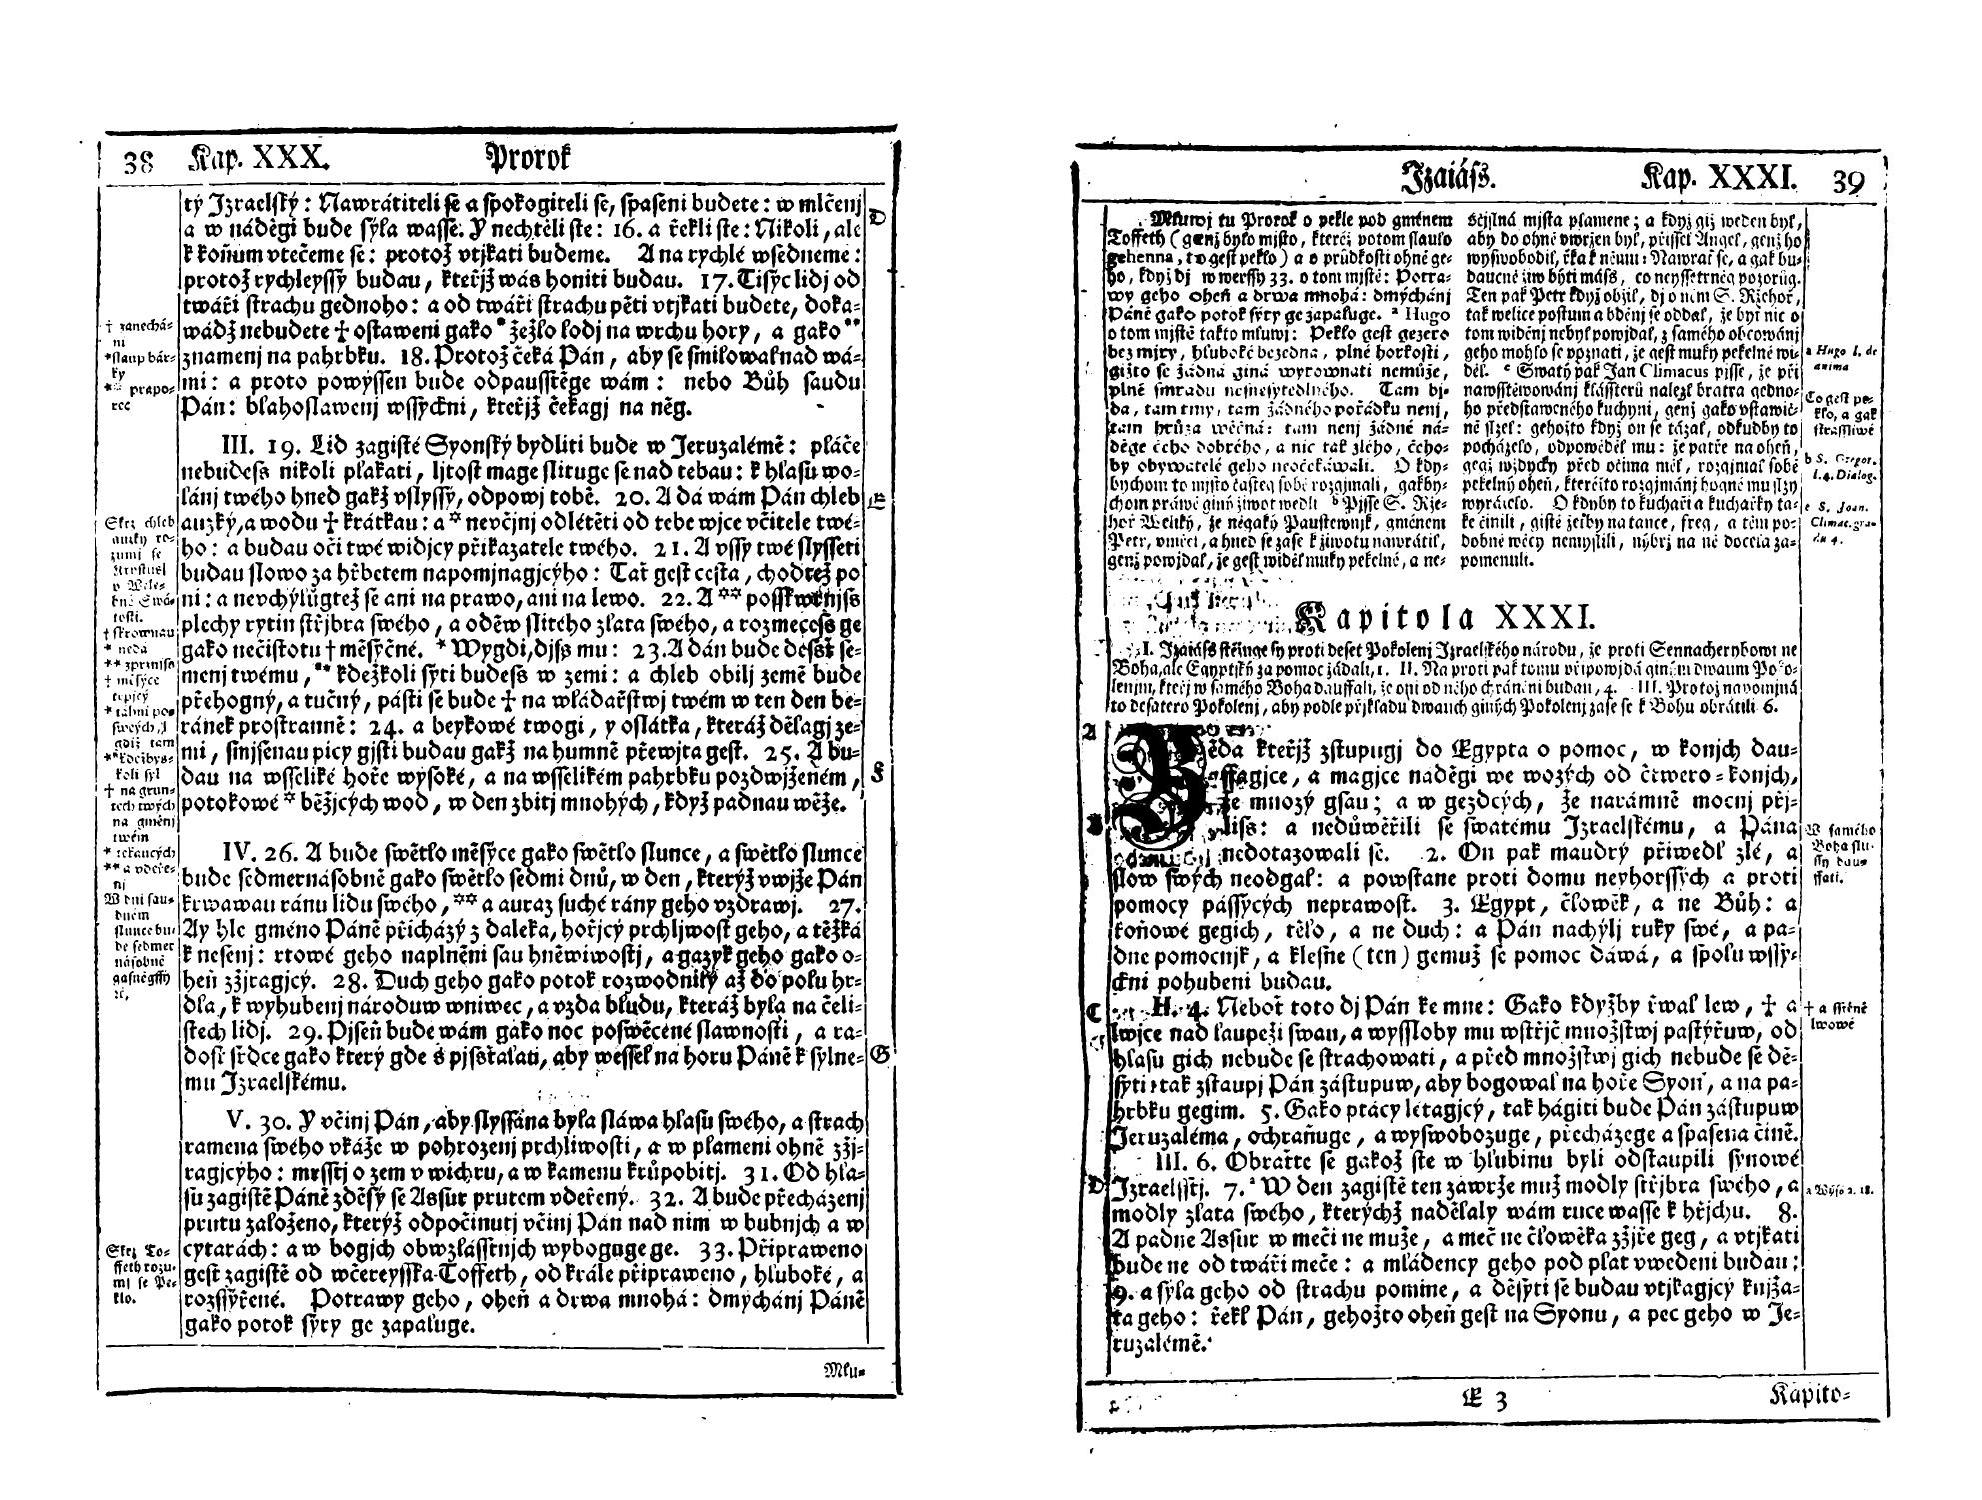 38 Kap. XXX. Prorok
tý Jzraelský: Nawrátiteli se a spokogiteli se, spaseni budete: w mlčenj
a w náděgi bude sýla wasse. Y nechtěli ste: 16. a řekli ste: Nikoli, ale
k koňum vtečeme se: protož vtjkati budeme. A na rychlé wsedneme:
protož rychleyssý budau, kteřjž wás honiti budau. 17. Tisýc lidj od
twáři strachu gednoho: a od twáři strachu pěti vtjkati budete, doka-
wádž nebudete † ostaweni gako * žežlo lodj na wrchu hory, a gako **
znamenj na pahrbku. 18. Protož čeká Pán, aby se smilowal nad wá-
mi: a proto powýssen bude odpausstěge wám: nebo Bůh saudu
Pán: blahoslawenj wssyckni, kteřjž čekagj na něg.
III. 19. Lid zagisté Syonský bydliti bude w Jeruzalémě: pláče
nebudess nikoli plakati, ljtost mage slituge se nad tebau: k hlasu wo-
lánj twého hned gakž vslyssý, odpowj tobě. 20. A dá wám Pán chleb
auzký, a wodu † krátkau: a * nevčinj odlétěti od tebe wjce včitele twé-
ho: a budau oči twé widjcy přikazatele twého. 21. A vssy twé slysseti
budau slowo za hřbetem napomjnagjcýho: Tať gest cesta, choďtež po
ni: a nevchylůgtež se ani na prawo, ani na lewo. 22. A ** posskwrnjss
plechy rytin střjbra swého, a oděw slitého zlata swého, a rozmecess ge
gako nečistotu † měsýčné. * Wygdi, djss mu: 23. A dán bude déssť se-
menj twému, ** kdežkoli sýti budess w zemi: a chleb obilj země bude
přehogný, a tučný, pásti se bude † na wládařstwj twém w ten den be-
ránek prostranně: 24. a beykowé twogi, y oslátka, kteráž dělagj ze-
mi, smjsenau picy gjsti budau gakž na humně přewjta gest. 25. A bu-
dau na wsseliké hoře wysoké, a na wsselikém pahrbku pozdwjženém,
potokowé * běžjcých wod, w den zbitj mnohých, když padnau wěže.
IV. 26. A bude swětlo měsýce gako swětlo slunce, a swětlo slunce
bude sedmernásobně gako swětlo sedmi dnů, w den, kterýž vwjže Pán
krwawau ránu lidu swého, ** a auraz suché rány geho vzdrawj. 27.
Ay hle gméno Páně přicházý z daleka, hořjcý prchljwost geho, a těžká
k nesenj: rtowé geho naplněni sau hněwiwostj, a gazyk geho gako o-
heň zžjragjcý. 28. Duch geho gako potok rozwodnilý až do polu hr-
dla, k wyhubenj národuw wniwec, a vzda bludu, kteráž byla na čeli-
stech lidj. 29. Pjseň bude wám gako noc poswěcené slawnosti, a ra-
dost srdce gako který gde s pjsstalati, aby wessel na horu Páně k sylne-
mu Jzraelskému.
V. 30. Y včinj Pán, aby slyssána byla sláwa hlasu swého, a strach
ramena swého vkáže w pohrozenj prchliwosti, a w plameni ohně zžj-
ragjcýho: mrsstj o zem v wichru, a w kamenu krůpobitj. 31. Od hla-
su zagistě Páně zděsý se Assur prutem vdeřený. 32. A bude přecházenj
prutu založeno, kterýž odpočinutj včinj Pán nad nim w bubnjch a w
cytarách: a w bogjch obwzlásstnjch wybogugege. 33. Připraweno
gest zagistě od wčereysska Toffeth, od krále připraweno, hluboké, a
rozssýřené. Potrawy geho, oheň a drwa mnohá: dmychánj Páně
gako potok sýry ge zapaluge.
Mlu-
† zanechá-
ni
* slaup bár-
ky
** prapo-
rec
Skrz chleb
auzky ro-
zumi se
Krystus
v Wele-
bné Swá-
tosti.
† skrownau
* nedá
** zprznjss
Skrz To-
ffeth rozu-
mi se Pe-
klo.
D
E
F
G
Jzaiáss. Kap. XXXI. 39
Mluwj tu Prorok o pekle pod gménem
Toffeth (genž bylo mjsto, kteréž potom slaulo
gehenna, to gest peklo) a o prudkosti ohně ge-
ho, když dj w werssy 33. o tom mjstě: Potra-
wy geho oheň a drwa mnohá: dmýchánj
Páně gako potok sýry ge zapaluge. a Hugo
o tom mjstě takto mluwj: Peklo gest gezero
bez mjry, hluboké bezedna, plné horkosti,
gižto se žádná giná wyrownati nemůže,
plné smradu nesnesytedlného. Tam bj-
da, tam tmy, tam žádného pořádku nenj,
tam hrůza wěčná: tam nenj žádné ná-
děge čeho dobrého, a nic tak zlého, čeho-
by obywatelé geho neočekáwali. O kdy-
bychom to mjsto častěg sobě rozgjmali, gakby-
chom práwě giný žiwot wedli b Pjsse S. Rže-
hoř Weliký, že něgaký Paustewnjk, gménem
Petr, vmřel, a hned se zase k žiwotu nawrátil,
genž powjdal, že gest widěl muky pekelné, a ne-
sčjslná mjsta plamene; a když giž weden byl,
aby do ohně vwržen byl, přissel Angel, genž ho
wyswobodil, řka k němu: Nawrať se, a gak bu-
daucně žiw býti máss, co neyssetrněg pozorůg.
Ten pak Petr když obžil, dj o něm S. Ržehoř,
tak welice postum a bděnj se oddal, že byť nic o
tom widěnj nebyl powjdal, z samého obcowánj
geho mohlo se poznati, že gest muky pekelné wi-
děl. c Swatý pak Jan Climacus pjsse, že při
nawsstěwowánj klásterů nalezl bratra gedno-
ho představeného kuchyni, genž gako vstawič-
ně slzel: gehožto když on se tázal, odkudby to
pocházelo, odpowěděl mu: že patře na oheň,
gegž wždycky před očima měl, rozgjmal sobě
pekelný oheň, kteréžto rozgjmánj hogné mu slzy
wyráželo. O kdyby to kuchaři a kuchařky ta-
ké činili, gistě žeťby na tance, freg, a těm po-
dobné wěcy nemyslili, nýbrž na ně docela za-
pomenuli.
Kapitola XXXI.
I. Jzaiáss střjnge sy proti deset Pokolenj Jzraelského národu, že proti Sennacherybowi ne
Boha, ale Egyptský za pomoc žádali, 1. II. Na proti pak tomu připowjdá giným dwaum Poko-
lenjm, kteřj w samého Boha dauffali, že oni od něho chráněni budau, 4. III. Protož napomjná
to desatero Pokolenj, aby podle přjkladu dwauch giných Pokolenj zase se k Bohu obrátili 6.
Běda kteřjž zstupugj do Egypta o pomoc, w konjch dau-
ffagjce, a magjce naděgi we wozých od čtwero-konjch,
že mnozý gsau; a w gezdcých, že narámně mocnj přj-
liss: a nedůwěřili se swatému Jzraelskému, a Pána
nedotazowali se. 2. On pak maudrý přiwedl zlé, a
slow swých neodgal: a powstane proti domu neyhorssých a proti
pomocy pássýcých neprawost. 3. Egypt, člowěk, a ne Bůh: a
koňowé gegich, tělo, a ne duch: a Pán nachýlj ruky swé, a pa-
dne pomocnjk, a klesne (ten) gemuž se pomoc dáwá, a spolu wssy-
ckni pohubeni budau.
II. 4. Neboť toto dj Pán ke mne: Gako kdyžby řwal lew, † a
lwjče nad laupeži swau, a wyssloby mu wstřjč množstwj pastýřuw, od
hlasu gich nebude se strachowati, a před množstwj gich nebude se dě-
syti: tak zstaupj Pán zástupuw, aby bogowal na hoře Syon, a na pa-
hrbku gegim. 5. Gako ptácy létagjcý, tak hágiti bude Pán zástupuw
Jeruzaléma, ochraňuge, a wyswobozuge, přecházege a spasena čině.
III. 6. Obraťte se gakož ste w hlubinu byli odstaupili synowé
Jzraelsstj. 7. a W den zagistě ten zawrže muž modly střjbra swého, a
modly zlata swého, kterýchž nadělaly wám ruce wasse k hřjchu. 8.
A padne Assur w meči ne muže, a meč ne člowěka zžjře geg, a vtjkati
bude ne od twáři meče: a mládency geho pod plat vwedeni budau:
9. a sýla geho od strachu pomine, a děsýti se budau vtjkagjcý knjža-
ta geho: řekl Pán, gehožto oheň gest na Syonu, a pec geho w Je-
ruzalémě.
E 3 Kapito-
a Hugo l. de
anima
Co gest pe-
klo, a gak
strassliwé
b S. Gregor.
l. 4. Dialog.
c S. Joan.
Climac. gra-
du 4.
W samého
Boha slu-
ssy dau-
ffati.
† a sstěně
lwowé
a Wýso 2. 18.
A
B
C
D